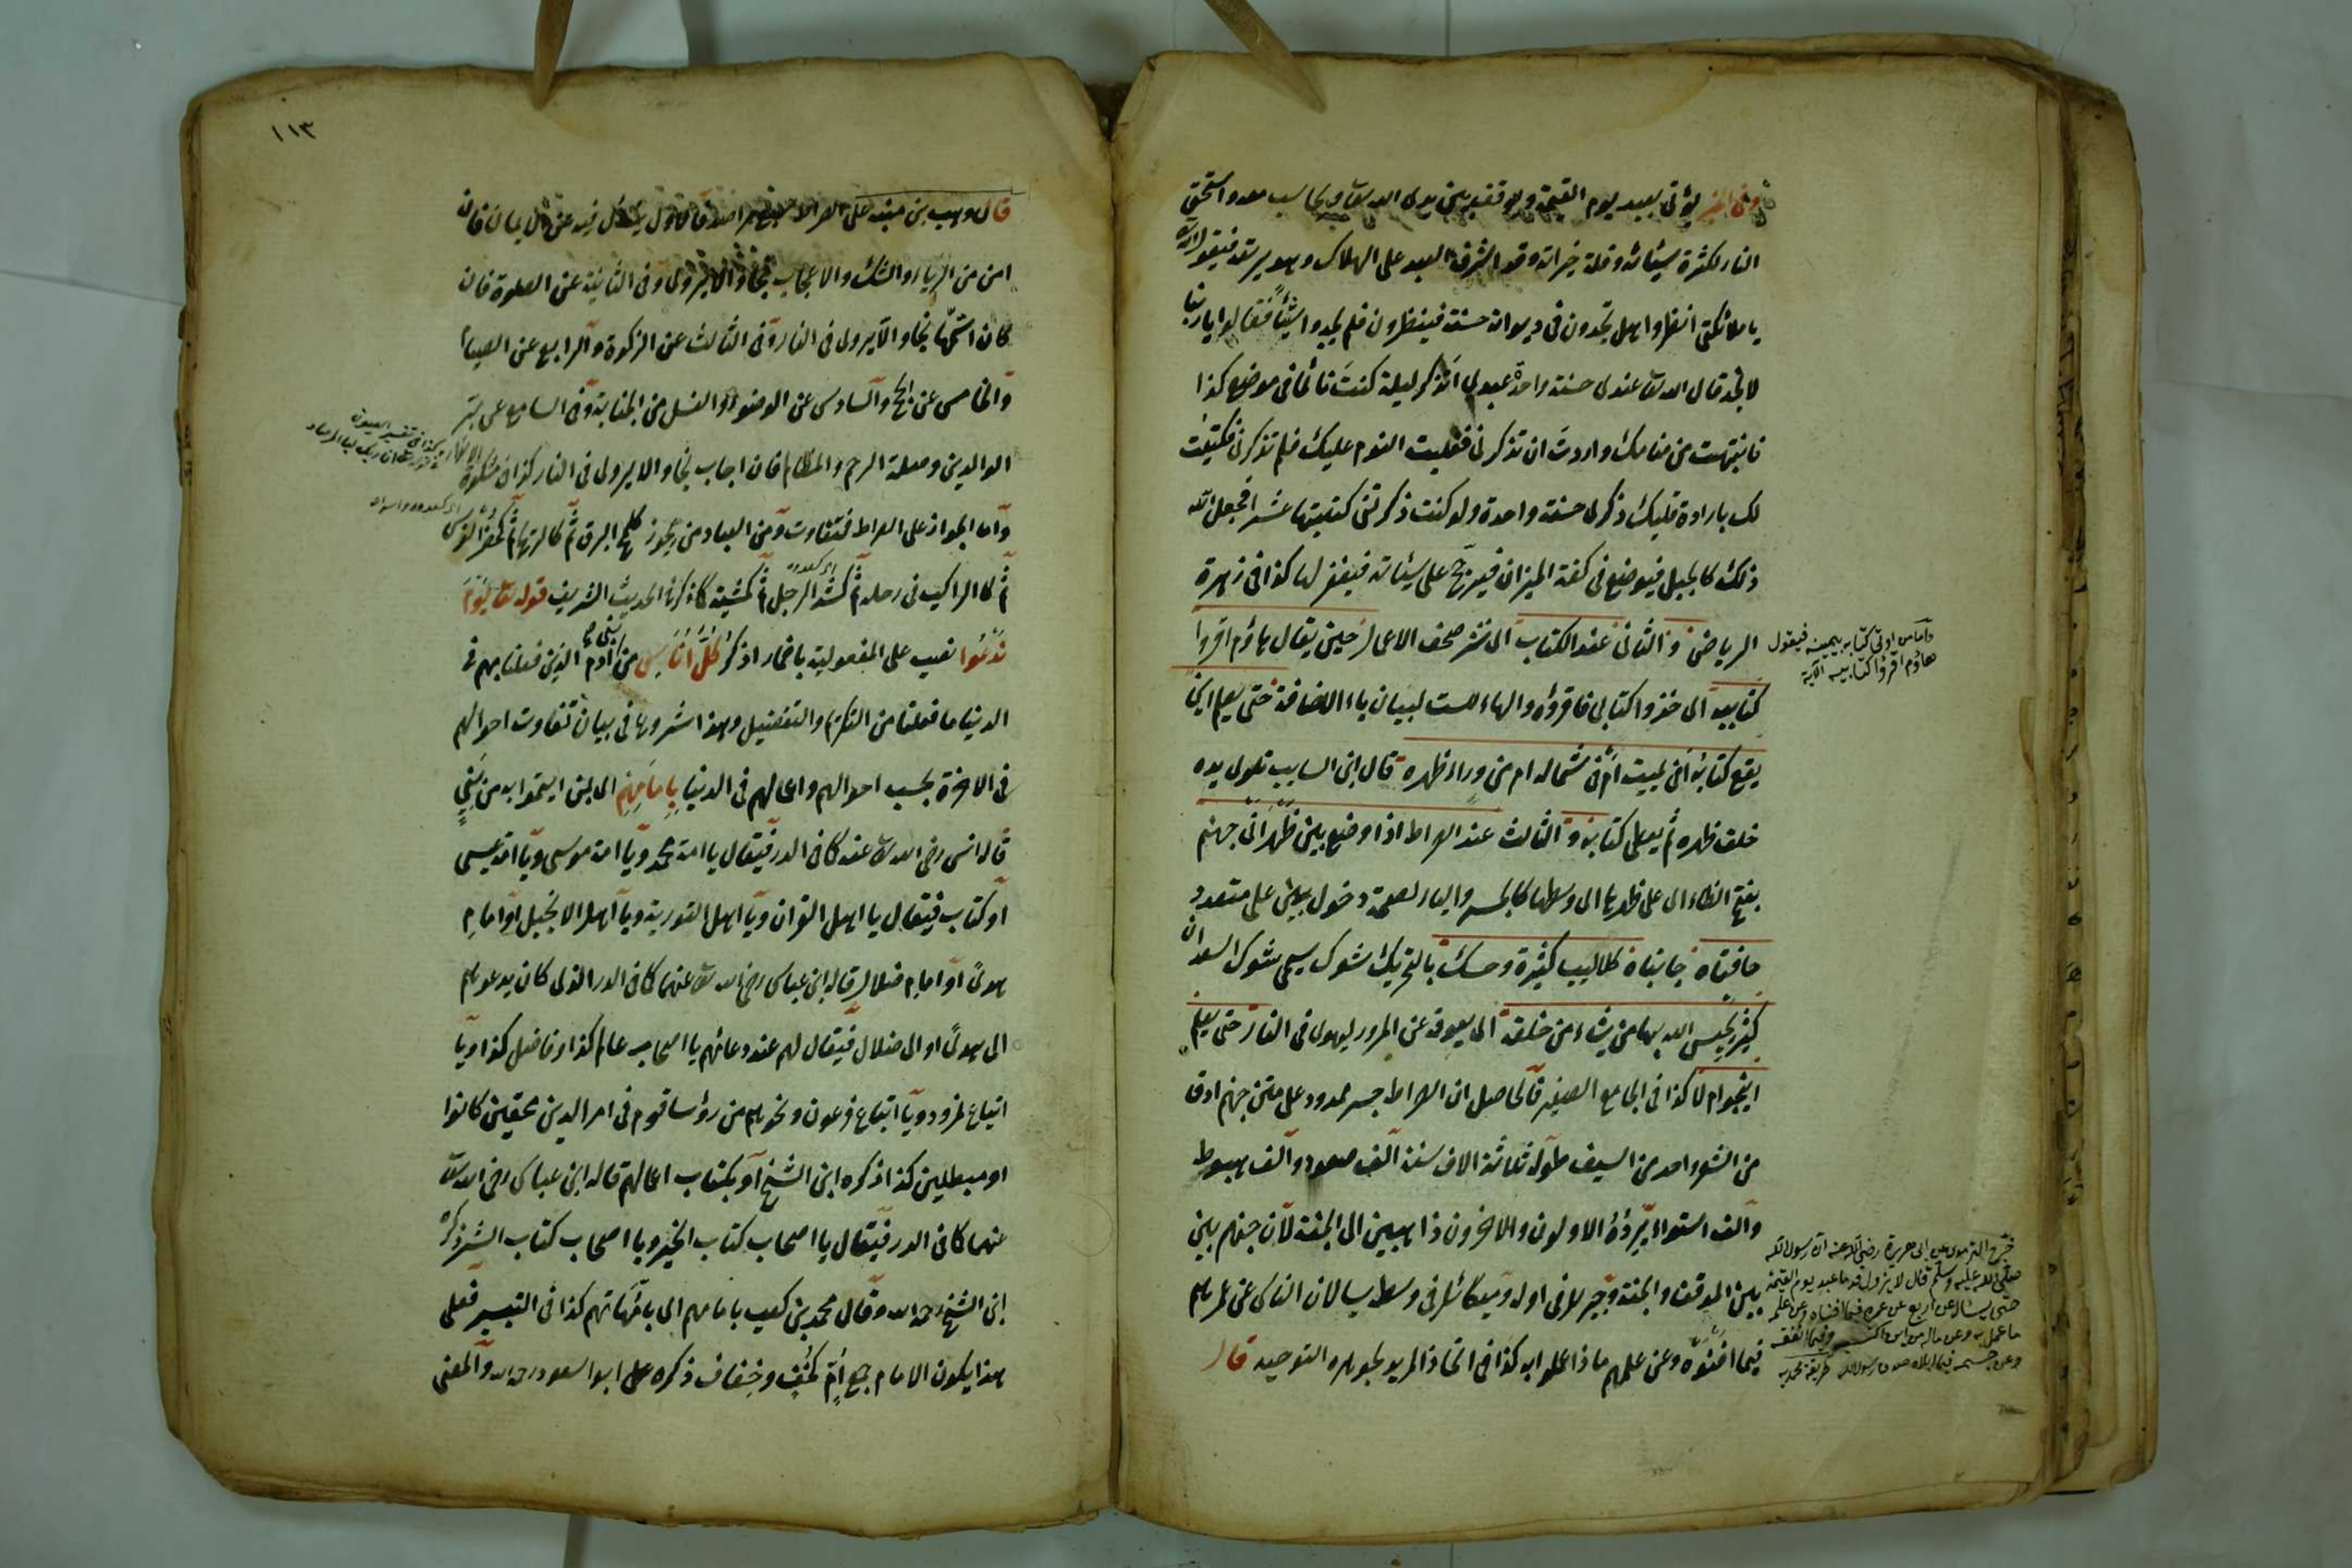 وفى الخبر يؤتى بعبد يوم القيمة ويوقف بين يدى الله تعا ويحاسب معه واستحق
النار لكثرة سيئاته وقلة خيراته وقد اشرف العبد على الهلاك وهو يرتعد فيقول الله
يا ملائكتى انظروا هل تجدون فى ديوانه حسنة فينظرون فلم يجدوا شيئًا فقالوا يا ربنا
لا نجد قال الله تعا عندى حسنة واحدة عبدى اتذكر ليلة كنت نائما فى موضع كذا
فانتبهت من منامك واردت ان تذكرنى فغلبت النوم عليك فلم تذكرنى فكتبت
لك بارادة قلبك ذكرى حسنة واحدة ولو كنت ذكرتنى كتبتها عشرا فجعل الله
ذلك كالجبل فيوضع فى كفة الميزان فيرجح على سيئاته فيغفر لها كذا فى زهرة
الرياض والثانى عند الكتاب اى نشر صحف الاعمال حين يقال هاؤم اقرؤا
وامامن اوتى كتابه بيمينه فيقول
هاؤم اقرؤا كتابيه الآية
كتابيه اى خذوا كتابى فاقرؤه والهاء للسكت لبيان ياء الاضافة حتى يعلم اين
يقع كتابه افى يمينه ام فى شماله ام من وراء ظهره قال ابن السايب تلوى يده
خلف ظهره ثم يعطى كتابه و الثالث عند الصراط اذا وضع بين ظهرانى جهنم
بفتح الظاء اى على ظهرها اى وسطها كالجسر والباء لصحة دخول بين على متعدد
حافتاه جانباه كلاليب كثيرة وحسك بالتحريك شوك يسمى شوك السعدان
كثير يحبس الله بها من يشاء من خلقه اى يعوقه عن المرور ليهوى فى النار حتى يعلم
اينجو ام لا كذا فى الجامع الصغير فالحاصل ان الصراط جسر ممدود على متن جهنم ادق
من الشعر واحد من السيف طوله ثلاثة الاف سنة الف صعود والف هبوط
والف استواء يرده الاولون والاخرون ذاهبين الى الجنة لان جهنم بين
بين الموقف والجنة وجبريل فى اوله وميكائيل فى وسطه يسالان الناس عن عمرهم
فيما افنوه وعن علمهم ماذا عملوا به كذا فى اتحاذ المريد لجوهره التوحيد قال
خرج الترمذى عن ابى هريرة رضى الله عنه ان رسول الله
صلى الله عليه وسلم قال لا يزول قدما عبد يوم القيمة
حتى يسئال عن اربع عن عمره فيما افناه وعن علمه
ما عمل به وعن ماله من اين اكتسبه وفيما انفقه
وعن جسمه فيما ابلاه صدق رسول الله طريقة محمديه
١١٣
قال وهب بن منبه على الصراط فاول يسئل فيه عن الايمان فان
امن من الرياء والشك والاعجاب نجا والا يتردى وفى الثانية عن الصلوة فان
كان اتمها نجا والا يردى فى النار وفى الثالث عن الزكوة والرابع عن الصيام
والخامس عن الحج والسادس عن الوضوء والغسل من الجنابة وفى السابع عن بر
الوالدين وصلة الرحم والمظالم فان اجاب نجا والا يردى فى النار كذا فى مشكوة الانوار
كذا فى تفسير العيون
ان ربك لبا المرصاد
واما الجواز على الصراط فتفاوت ومن العباد من يجوز كلمح البرق ثم كالريح ثم كحضر الفرس
ثم كالراكب فى رحله ثم كشد الرجل ثم كمشيه كما ذكر فى الحديث الشريف قوله تعا يوم
ندعوا نصب على المفعولية باضمار اذكر كل اناس من بنى آدم الذين فعلنا بهم فى
الدنيا ما فعلنا من التكريم والتفضيل وهذا شروع فى بيان تفاوت احوالهم
فى الاخرة بحسب احوالهم واعمالهم فى الدنيا بامامهم اى بمن ايتموا به من نبى
قاله انس رضى الله تعا عنه كما فى الدر فيقال يا امة محمد ويا امة موسى ويا امة عيسى
او كتاب فيقال يا اهل القران ويا اهل التورية ويا اهل الانجيل او امام
هدى او امام ضلال قاله ابن عباس رضى الله تعا عنهما كما فى الدر الذى كان يدعوهم
الى هدى او الى ضلال فيقال لهم عند دعائهم يا اصحاب عالم كذا وفاضل كذا ويا
اتباع نمرود ويا اتباع فرعون ونحوهم من رؤسا قوم فى امر الدين محقين كانوا
او مبطلين كذا ذكره ابن الشيخ او بكتاب اعمالهم قاله ابن عباس رضى الله تعا
عنهما كما فى الدر فيقال يا اصحاب كتاب الخير ويا اصحاب كتاب الشر ذكره
ابن الشيخ رحمه الله وقال محمد بن كعب بامامهم اى بامهاتهم كذا فى التيسير فعلى
هذا يكون الامام جمع ام كخف وخفاف ذكره ابو السعود رحمه الله والمعنى